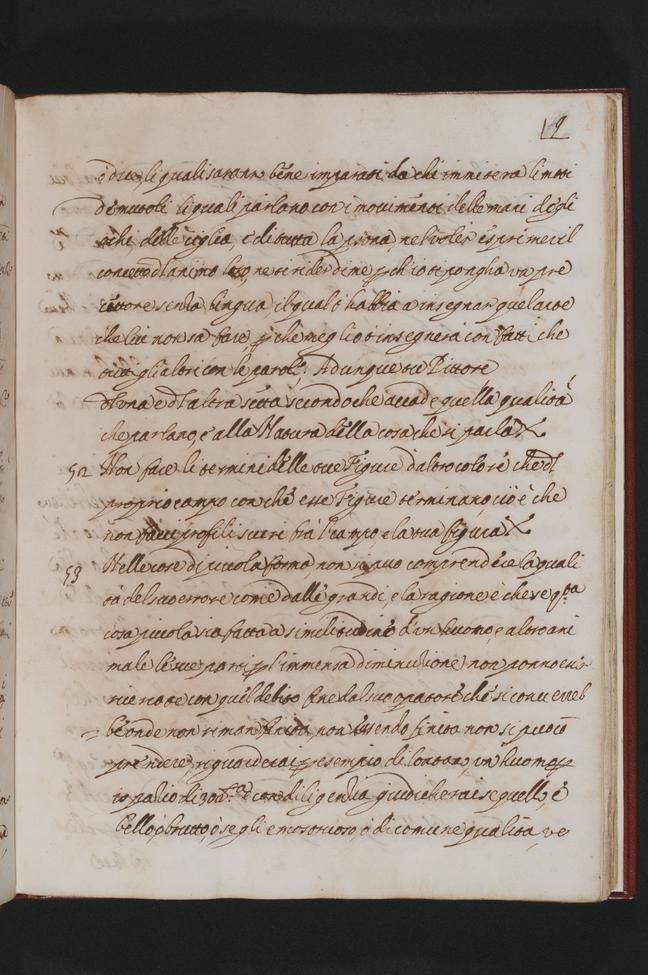 12
e due, li quali saranno bene imparati da chi imitera li moti
de mutoli li quali parlano con i movimenti delle mani degli
ochi delle ciglia, e di tutta la psona, nel voler esprimer il
concetto dl animo loro, ne ti rider di me p ch io ti pongha un pre
cettore senza lingua il qual t habbia a insegnar quel arte
che lui non sa fare, p che meglio t insegnera con fatti che
tutti gli altri con le parole. Adunque tu Pittore
dl una e dl altra setta secondo che accade quella qualità
che parlano, e alla Natura della cosa che si parla
52 Non fare li termini delle tue Figure d altro colore che dl
proprio campo con che esse Figure terminano, cioè che
non facci profili scuri frà l campo e la tua figura
53 Nelle cose di piccola forma, non si puo comprendere la quali
tà del suo errore come dalle grandi, e la ragione è che se qta
cosa piccola sia fatta a similitudine d un huomo, o altro ani
male le sue parti p l immensa diminutione non ponno esse
re ricercate con quel debito fine dal suo opatore che si converreb
be onde non riman finita, non essendo finita non si può co
prendere, riguarderai p esempio di lontano un huomo p
ispatio di 300. e con diligentia giudicherai se quello è
bello, ò brutto, ò se gli e mostruoso, ò di comune qualità, ve